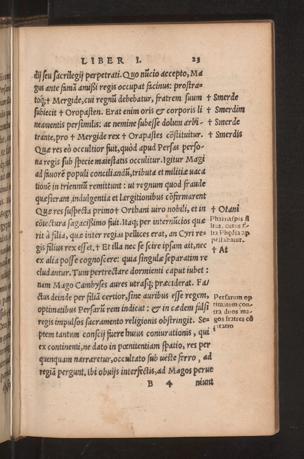 LIBER I. 23
dij seu sacrilegij perpetrati. Quo nūcio accepto, Ma
gus ante famā amissi regis occupat facinus: prostra-
toq; † Mergide, cui regnū debebatur, fratrem suum
subiecit † Oropasten. Erat enim oris & corporis li
neamentis persimilis: ac nemine subesse dolum arbi-
trante, pro † Mergide rex † Oropastes cōstituitur.
Quæ res eò occultior fuit, quòd apud Persas perso-
na regis sub specie maiestatis occulitur. Igitur Magi
ad fauorē populi conciliandū, tributa et militiæ uaca
tionē in triennū remittunt: ut regnum quod fraude
quæsierant, indulgentia et largitionibus cōfirmarent
Quæ res suspecta primo † Orthani uiro nobili, et in
cōiectura sagacissimo fuit. Itaq; per internūcios quæ
rit à filia, quæ inter regias pellices erat, an Cyri re-
gis filius rex esset. † Et illa nec se scire ipsam ait, nec
ex alia posse cognoscere: quia singulæ separatim re
cludantur. Tum pertrectare dormienti caput iubet:
nam Mago Cambyses aures utrasq; præciderat. Fa-
ctus deinde per filiā certior, sine auribus esse regem,
optimatibus Persarū rem indicat: & in cædem falsi
regis impulsos sacramento religionis obstringit. Se-
ptem tantum conscij fuere huius coniurationis, qui
ex continenti, ne dato in pœnitentiam spatio, res per
quenquam narraretur, occultato sub ueste ferro, ad
regiā pergunt. ibi obuijs interfectis, ad Magos perue
B 4 niunt
† Smerde
† Smerdim
† Smerdis
† Otani
† At
Persarum op
timatum con-
tra duos ma-
gos fratres cō